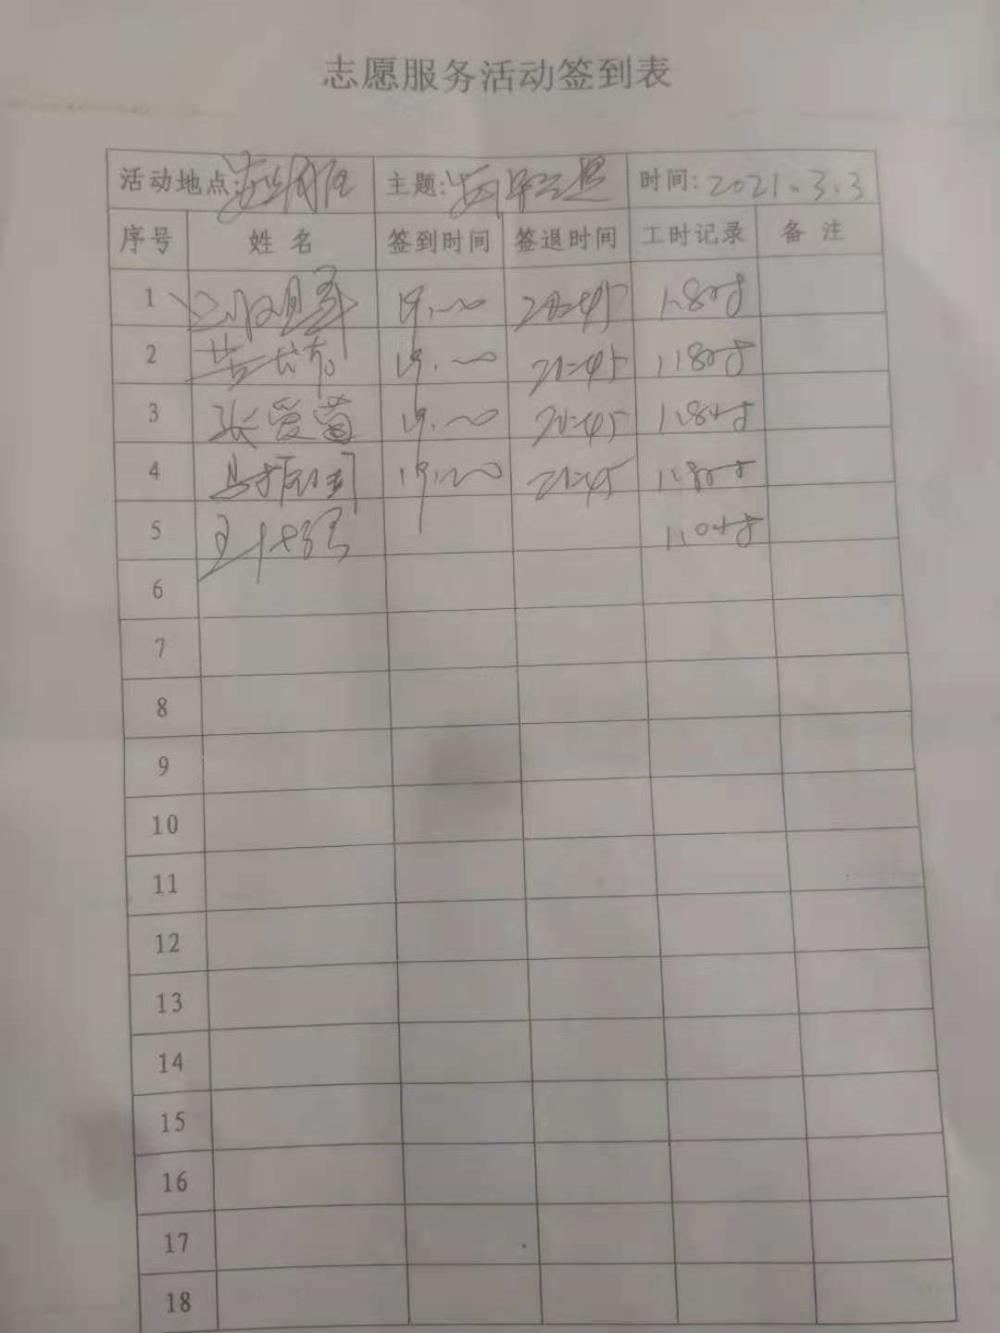 志愿服务活动签到表
活动地点: 主题: 时间: 2021.3.3
序号 姓名 签到时间 签退时间 工时记录 备注
1 19:00 20:45 1.8小时
2 19:00 20:45 1.8小时
3 张爱菊 19:00 20:45 1.8小时
4 19:00 20:45 1.8小时
5 1.0小时
6
7
8
9
10
11
12
13
14
15
16
17
18